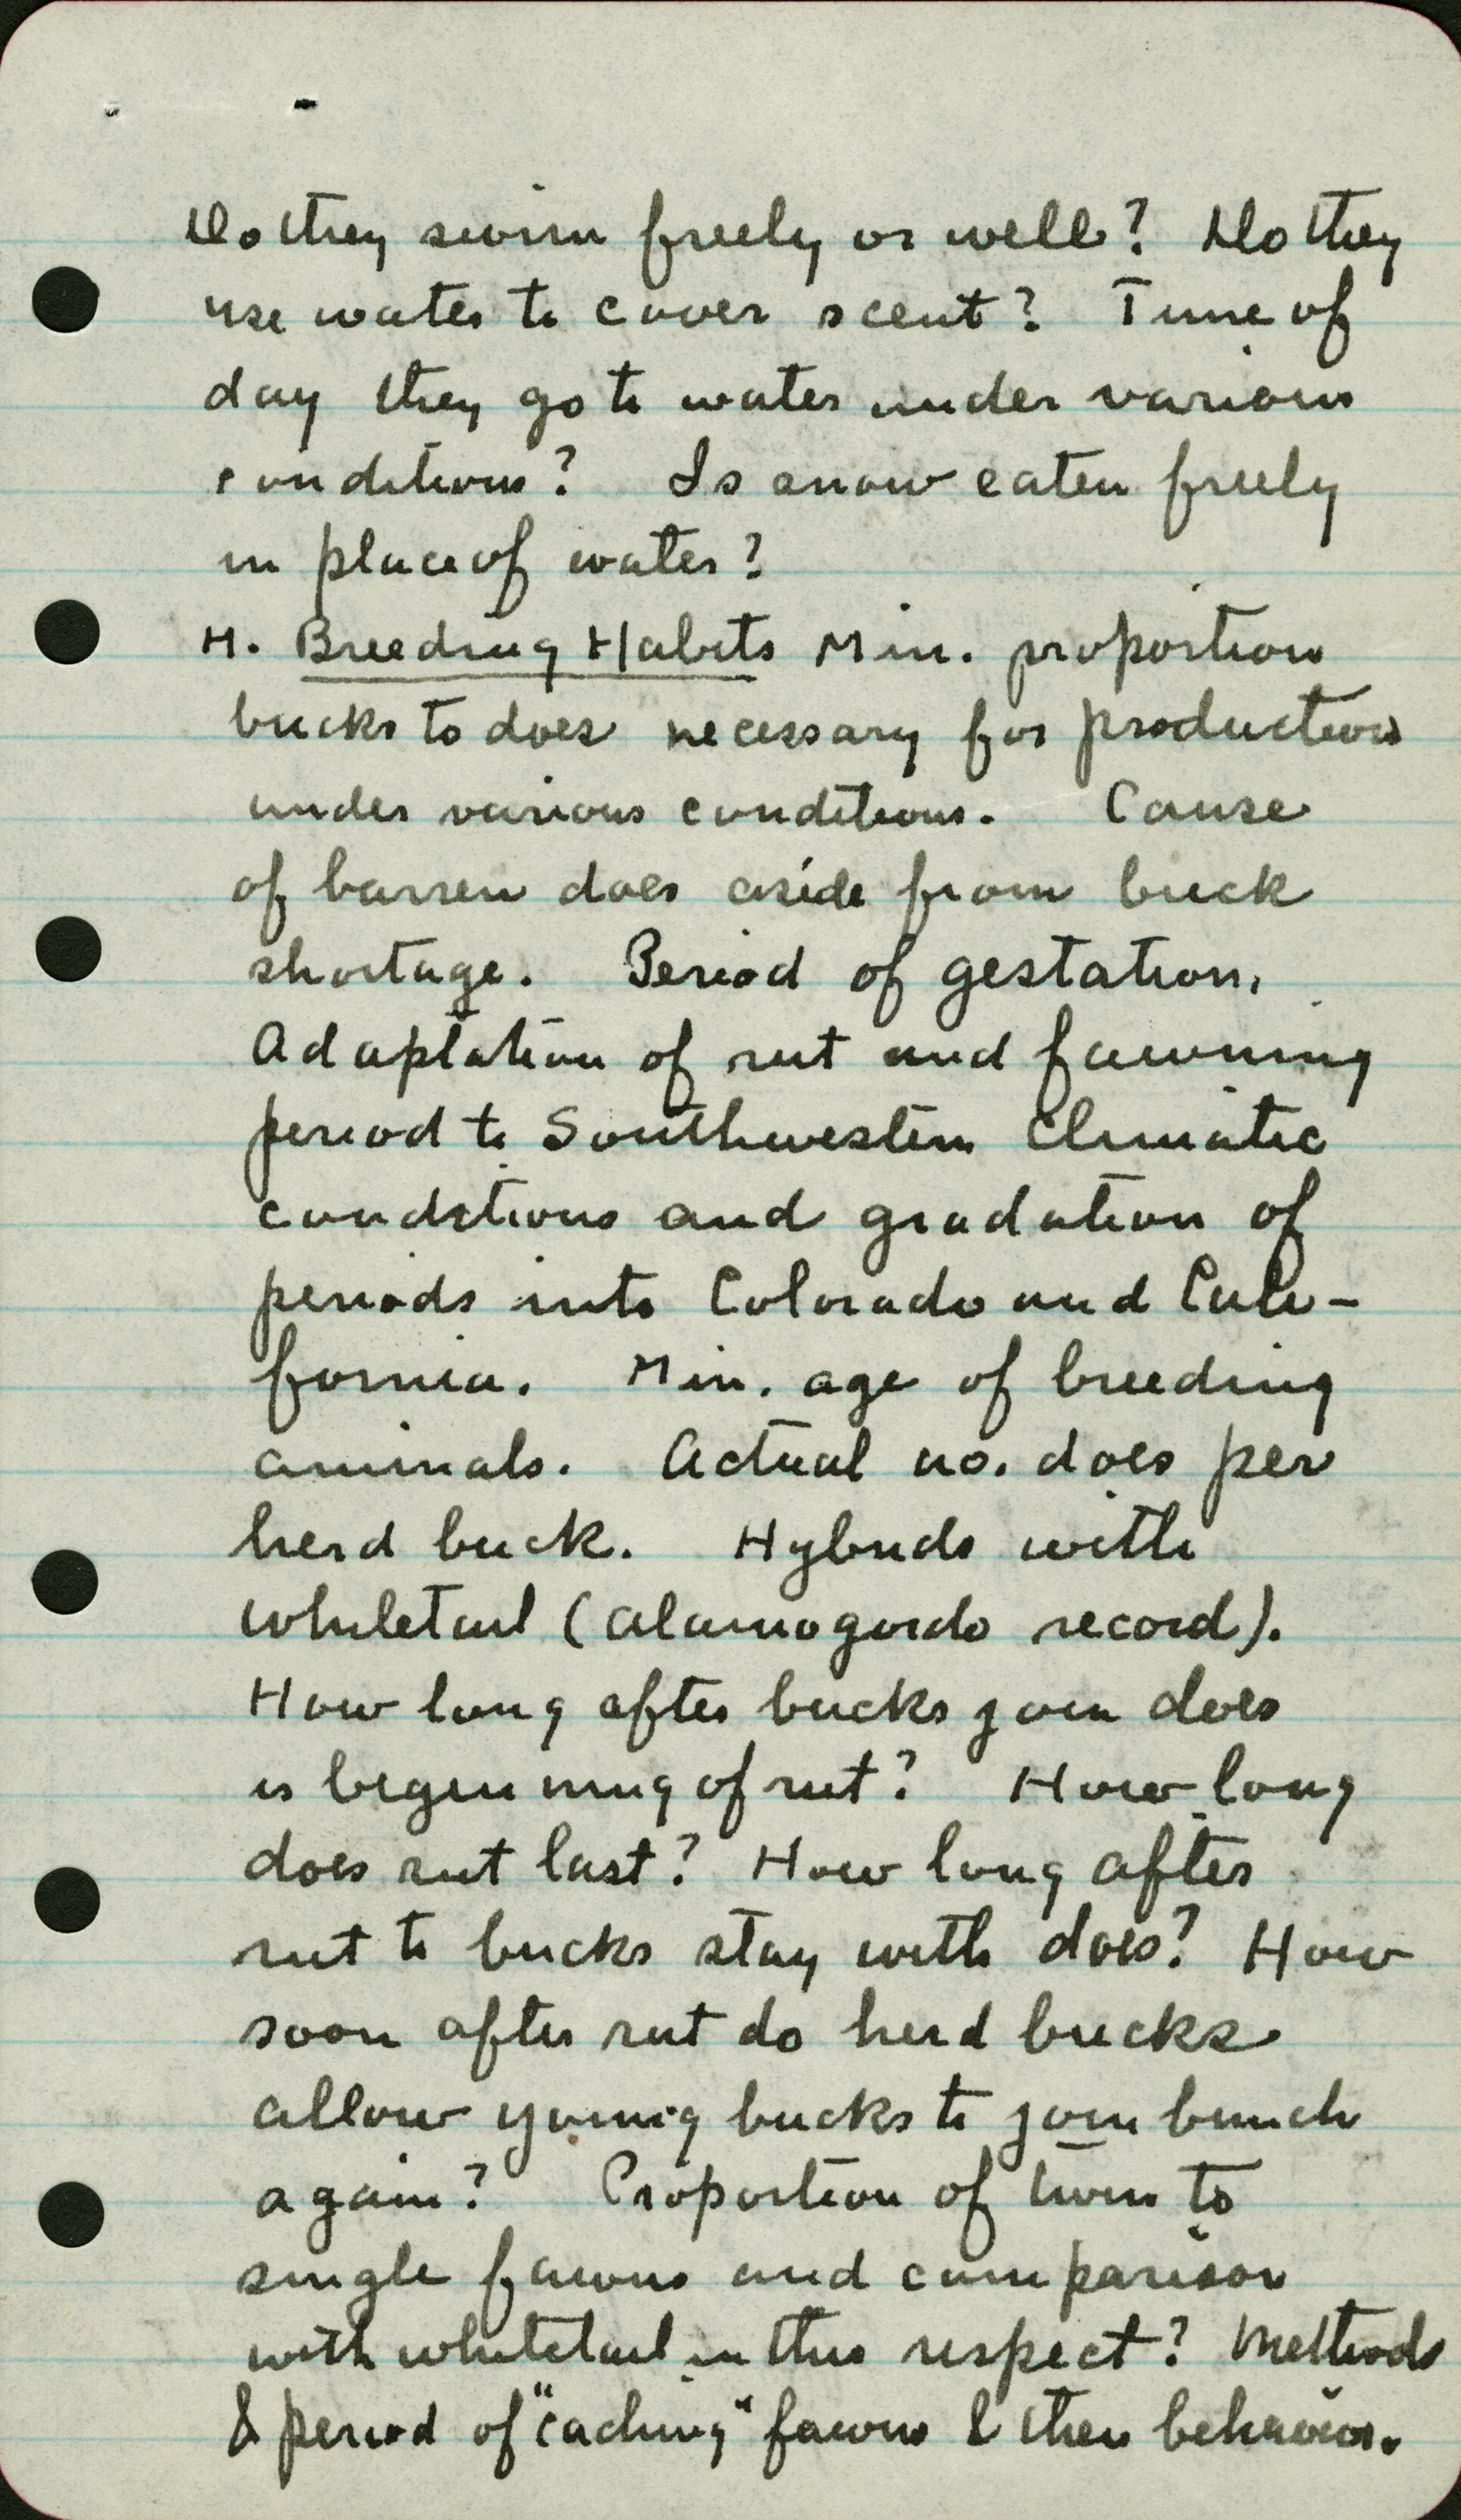 Do they swim freely or well? Do they
use water to cover scent? Time of
day they go to water under various
conditions? Is snow eaten freely
in place of water?
H. Breeding Habits Min. proportion
bucks to does necessary for production
under various conditions. Cause
of barren does aside from buck
shortage. Period of gestation.
Adaptation of rut and fawning
period to Southwestern climatic
conditions and gradation of
periods into Colorado and Cali-
fornia. Min. age of breeding
animals. Actual no. does per
herd buck. Hybrids with
whitetail (Alamogordo record).
How long after bucks join does
is beginning of rut? How long
does rut last? How long after
rut to bucks stay with does? How
soon after rut do herd bucks
allow young bucks to join bunch
again? Proportion of twins to
single fawns and comparison
with whitetail in this respect? Methods
& period of "caching" fawns & their behavior.